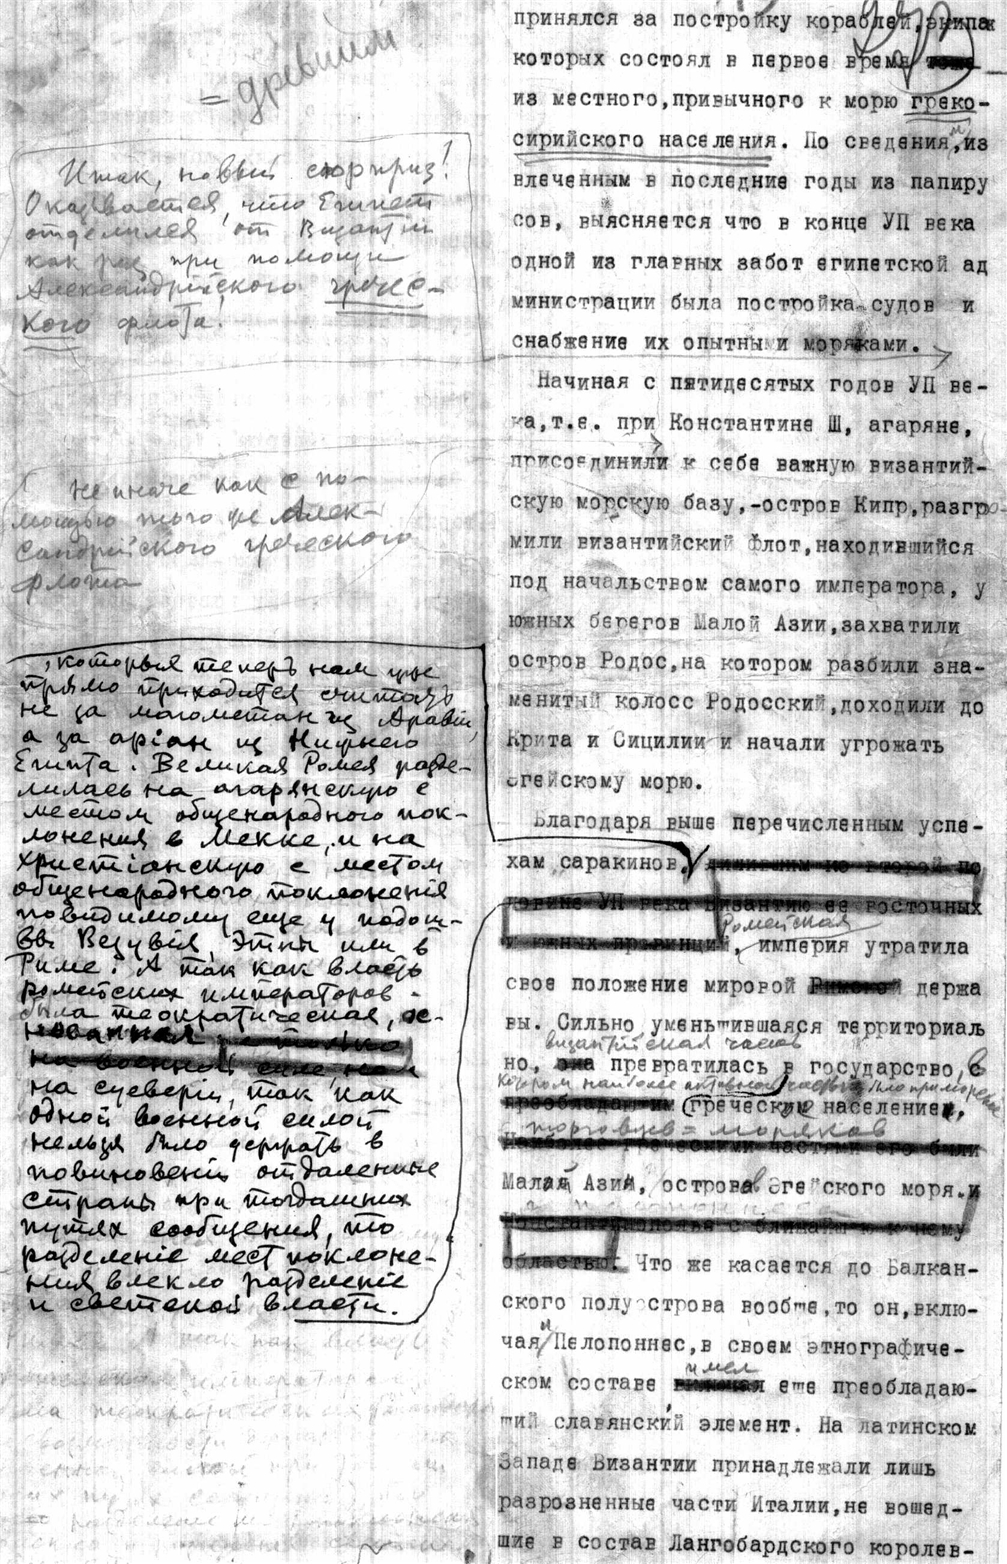 = древним
Итак, новый сюрприз!
Оказывается, что Египет
отделился от Византии
как раз при помощи
Александрийского гречес-
кого флота.
не иначе как с по-
мощью того же Алек-
сандрийского греческого
флота
, которыя теперь нам уже
прямо приходится считать
не за магометан из Аравіи,
а за аріан из Нижнего
Египта. Великая Ромея разде-
лилась на агарянскую с
местом общенародного пок-
лонения в Мекке, и на
христіанскую с местом
общенародного поклоненія
повидимому еще у подош-
вы Везувія, Этны или в
Риме. А так как власть
ромейских императоров
была теократическая, ос-
нованная
на суеверіи, так как
одной военной силой
нельзя было держать в
повиновеніи отдаленные
страны при тогдашних
путях сообщения, то
разделеніе мест поклоне-
ния влекло разделеніе
и светской власти.
принялся за постройку кораблей, экипаж
которых состоял в первое время
из местного,привычного к морю греко-
сирийского населения. По сведениям,из
влеченным в последние годы из папиру
сов, выясняется что в конце УП века
одной из главных забот египетской ад
министрации была постройка судов и
снабжение их опытными моряками.
Начиная с пятидесятых годов УП ве-
ка,т.е. при Константине Ш, агаряне,
присоединили к себе важную византий-
скую морскую базу,-остров Кипр,разгро-
мили византийский флот,находившийся
под начальством самого императора, у
южных берегов Малой Азии,захватили
остров Родос,на котором разбили зна-
менитый колосс Родосский,доходили до
Крита и Сицилии и начали угрожать
Эгейскому морю.
Благодаря выше перечисленным успе-
хам саракинов, лишившим во второй по
ловине УП века Византию ее восточных
Ромейская
и южных провинций, империя утратила
свое положение мировой Римской держа
вы. Сильно уменьшившаяся территориаль
византійская часть
но, она превратилась в государство, в
котором наиболее активной частью было приморское
преобладающим греческим населением,
торговцев = моряков
Наиболее греческими частями его были
Малая Азия, острова Эгейского моря и
Константинополье с ближайшею к нему
областью. Что же касается до Балкан-
ского полуострова вообще,то он,вклю-
чая и Пелопоннес,в своем этнографиче-
имел
ском составе еще преобладаю-
щий славянский элемент. На латинском
Западе Византии принадлежали лишь
разрозненные части Италии,не вошед-
шие в состав Лангобардского королев-